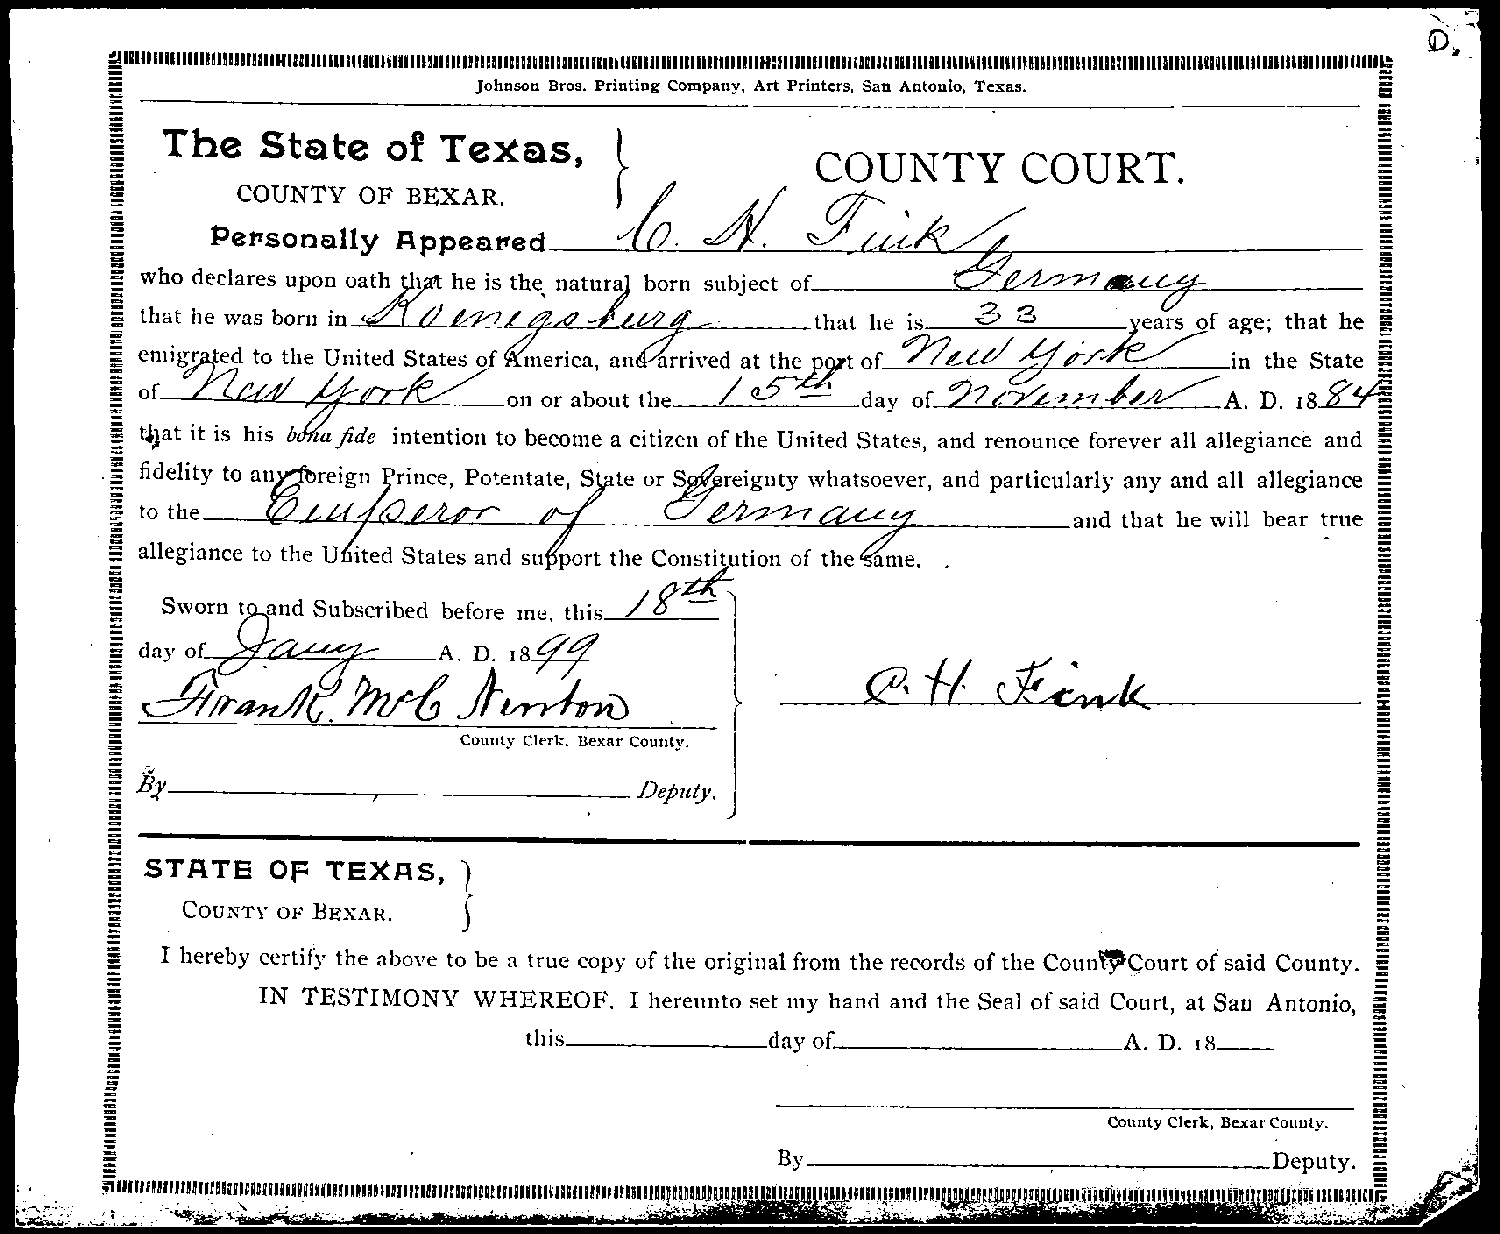 D.
Johnson Bros. Printing Company, Art Printers, San Antonio, Texas.
The State of Texas,
COUNTY OF BEXAR.
COUNTY COURT.
Personally Appeared C. H. Fink
who declares upon oath that he is the natural born subject of Germany
that he was born in Koenigsburg that he is 33 years of age; that he
emigrated to the United States of America, and arrived at the port of New York in the State
of New York on or about the 15th day of November A. D. 1884
that it is his bona fide intention to become a citizen of the United States, and renounce forever all allegiance and
fidelity to any foreign Prince, Potentate, State or Sovereignty whatsoever, and particularly any and all allegiance
to the Emperor of Germany and that he will bear true
allegiance to the United States and support the Constitution of the same.
Sworn to and Subscribed before me, this 18th
day of Jany A. D. 1899
Frank McC Newton
County Clerk, Bexar County.
By Deputy.
C. H. Fink
STATE OF TEXAS,
COUNTY OF BEXAR.
I hereby certify the above to be a true copy of the original from the records of the County Court of said County.
IN TESTIMONY WHEREOF, I hereunto set my hand and the Seal of said Court, at San Antonio,
this day of A. D. 18
County Clerk, Bexar County.
By Deputy.